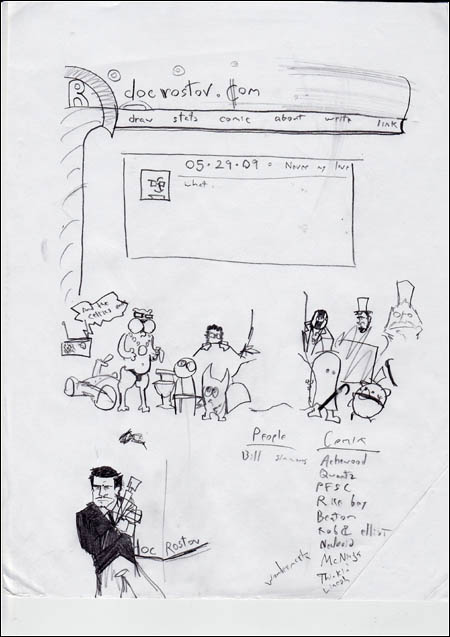 docrostov.com
draw stats comic about write link
05.29.09 = Never my love
what.
And the
Celtics
People
Bill Simmons
Comix
Achewood
Quantz
PFSC
Rice boy
Beaton
Rob & elliot
Nedroid
McNinja
Thinkin
Lincoln
wondermark
doc Rostov